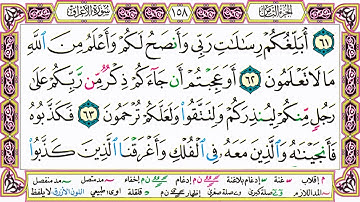 سورة الأعراف ١٥٨ الجزء الثامن
٦١ أُبَلِّغُكُمْ رِسَالَاتِ رَبِّي وَأَنصَحُ لَكُمْ وَأَعْلَمُ مِنَ اللَّهِ
مَا لَا تَعْلَمُونَ ٦٢ أَوَعَجِبْتُمْ أَن جَاءَكُمْ ذِكْرٌ مِّن رَّبِّكُمْ عَلَى
رَجُلٍ مِّنكُمْ لِيُنذِرَكُمْ وَلِتَتَّقُوا وَلَعَلَّكُمْ تُرْحَمُونَ ٦٣ فَكَذَّبُوهُ
فَأَنجَيْنَاهُ وَالَّذِينَ مَعَهُ فِي الْفُلْكِ وَأَغْرَقْنَا الَّذِينَ كَذَّبُوا